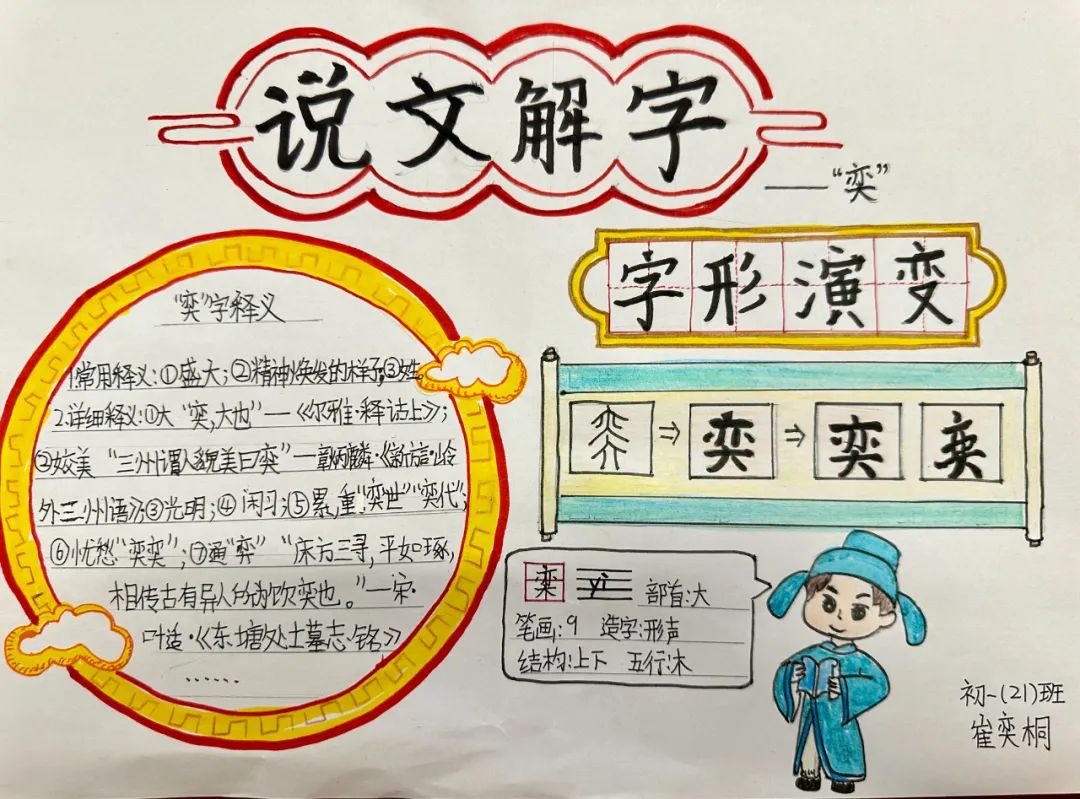 说文解字
——“奕”
“奕”字释义
1.常用释义:①盛大;②精神焕发的样子;③姓。
2.详细释义:①大“奕,大也”—《尔雅·释诂上》;
②姣美“三州谓人貌美曰奕”—章炳麟·《新方言·岭
外三州语》;③光明;④闲习;⑤累,重“奕世”“奕代”;
⑥忧愁“奕奕”;⑦通“弈”“床方三寻,平如琢,
相传古有异人所为饮奕也。”—宋·
叶适·《东塘处士墓志铭》
……
字形演变
⇒ 奕 ⇒ 奕 奕
yì 部首:大
笔画:9 造字:形声
结构:上下 五行:木
初一(21)班
崔奕桐